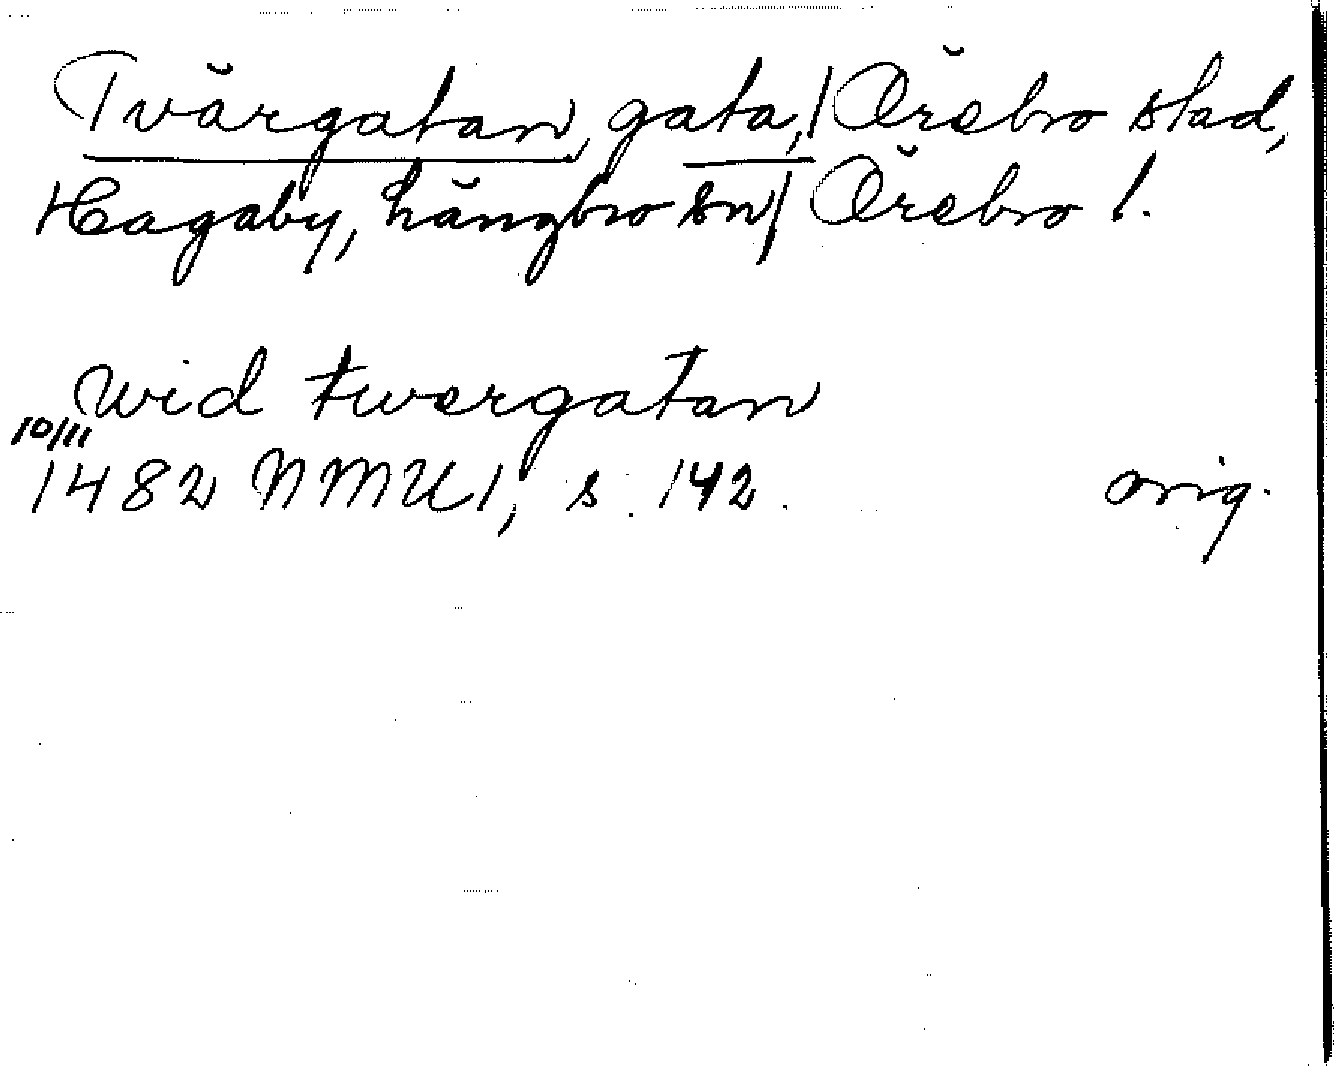 Tvärgatan, gata, / Örebro stad,
Hagaby, Längbro sn / Örebro l.
wid twergatan
10/11
1482 NMU 1, s. 142. orig.